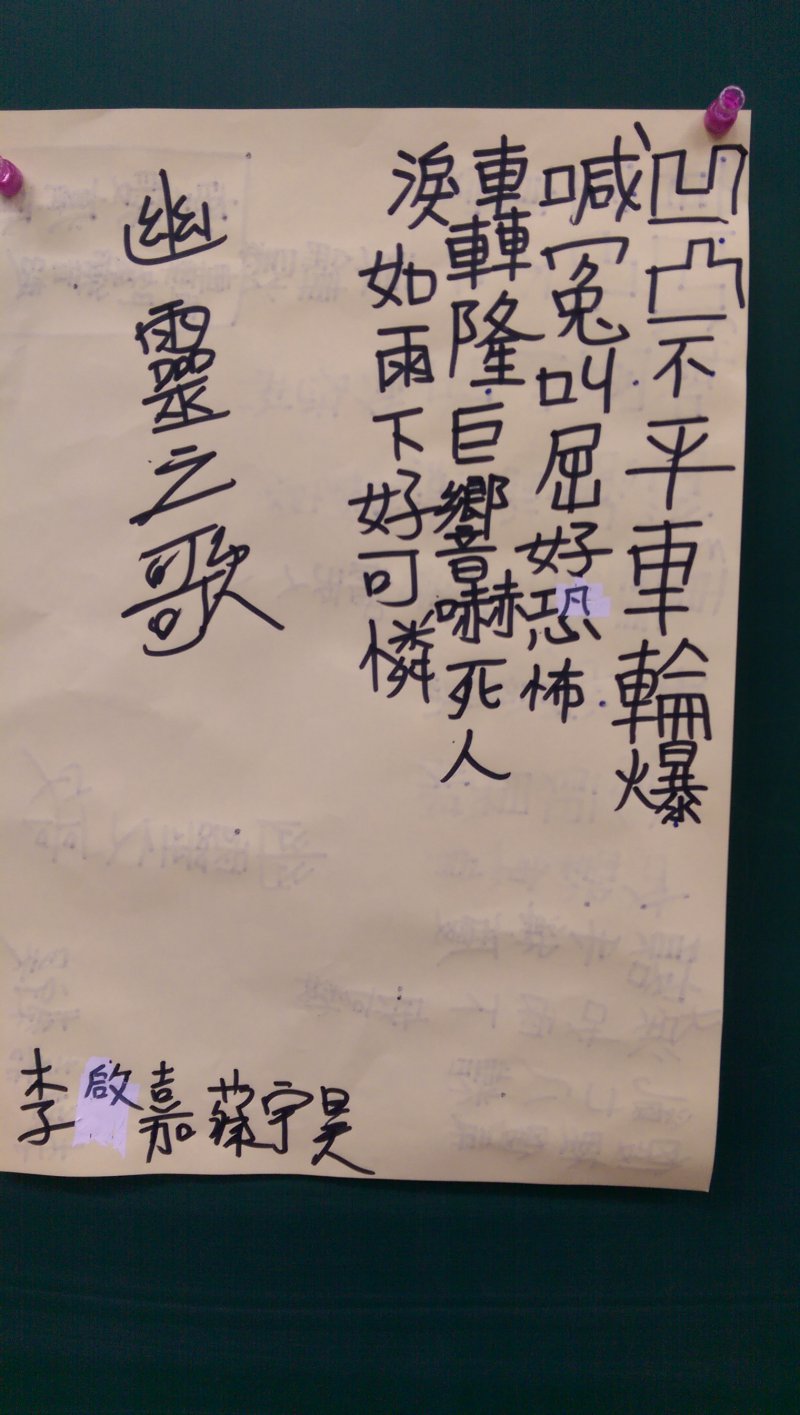 凹凸不平車輪爆
喊冤叫屈好恐怖
轟隆巨響嚇死人
淚如雨下好可憐
幽靈之歌
李啟嘉蔡宇昊